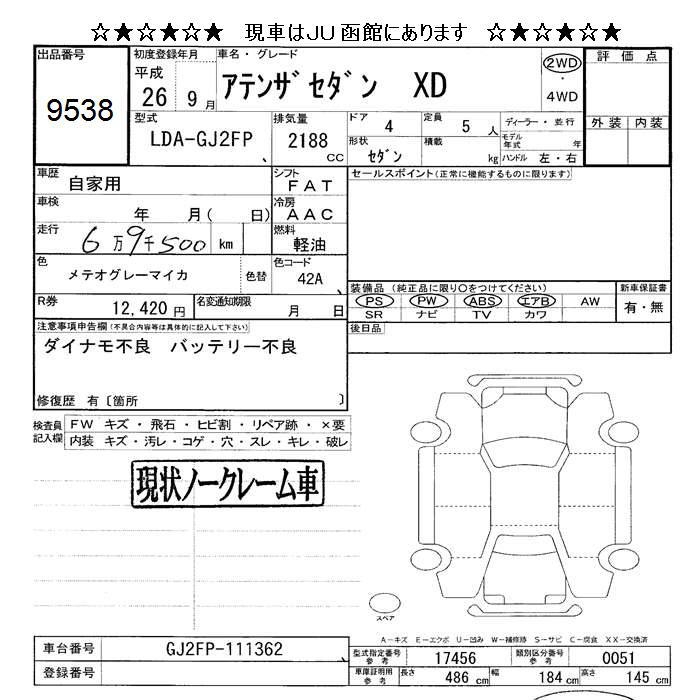 ☆★☆★☆★ 現車はJU函館にあります ☆★☆★☆★
出品番号 初度登録年月 車名・グレード 評価点
9538 平成 26 9月 アテンザセダン XD 2WD ・ 4WD
型式 排気量 ドア 定員 ディーラー・並行 外装 内装
LDA-GJ2FP 2188 CC 4 5人 モデル年式 年
形状 セダン 積載 kg ハンドル 左・右
車歴 自家用 シフト FAT セールスポイント(正常に機能するものに限ります)
車検 年 月( 日) 冷房 AAC
走行 6万9千500 km 燃料 軽油
色 メテオグレーマイカ 色替 色コード 42A
装備品 (純正品に限り○をつけてください) 新車保証書
PS PW ABS エアB AW 有・無
SR ナビ TV カワ
R券 12,420円 名変通知期限 月 日
注意事項申告欄(不具合内容等は具体的に記入して下さい) 後日品
ダイナモ不良 バッテリー不良
修復歴 有〔箇所 〕
検査員記入欄 FW キズ・飛石・ヒビ割・リペア跡・×要
内装 キズ・汚レ・コゲ・穴・スレ・キレ・破レ
現状ノークレーム車
スペア
A-キズ E-エクボ U-凹み W-補修跡 S-サビ C-腐食 XX-交換済
車台番号 GJ2FP-111362 型式指定番号 参考 17456 類別区分番号 参考 0051
登録番号 車庫証明用 参考 長さ 486 cm 幅 184 cm 高さ 145 cm